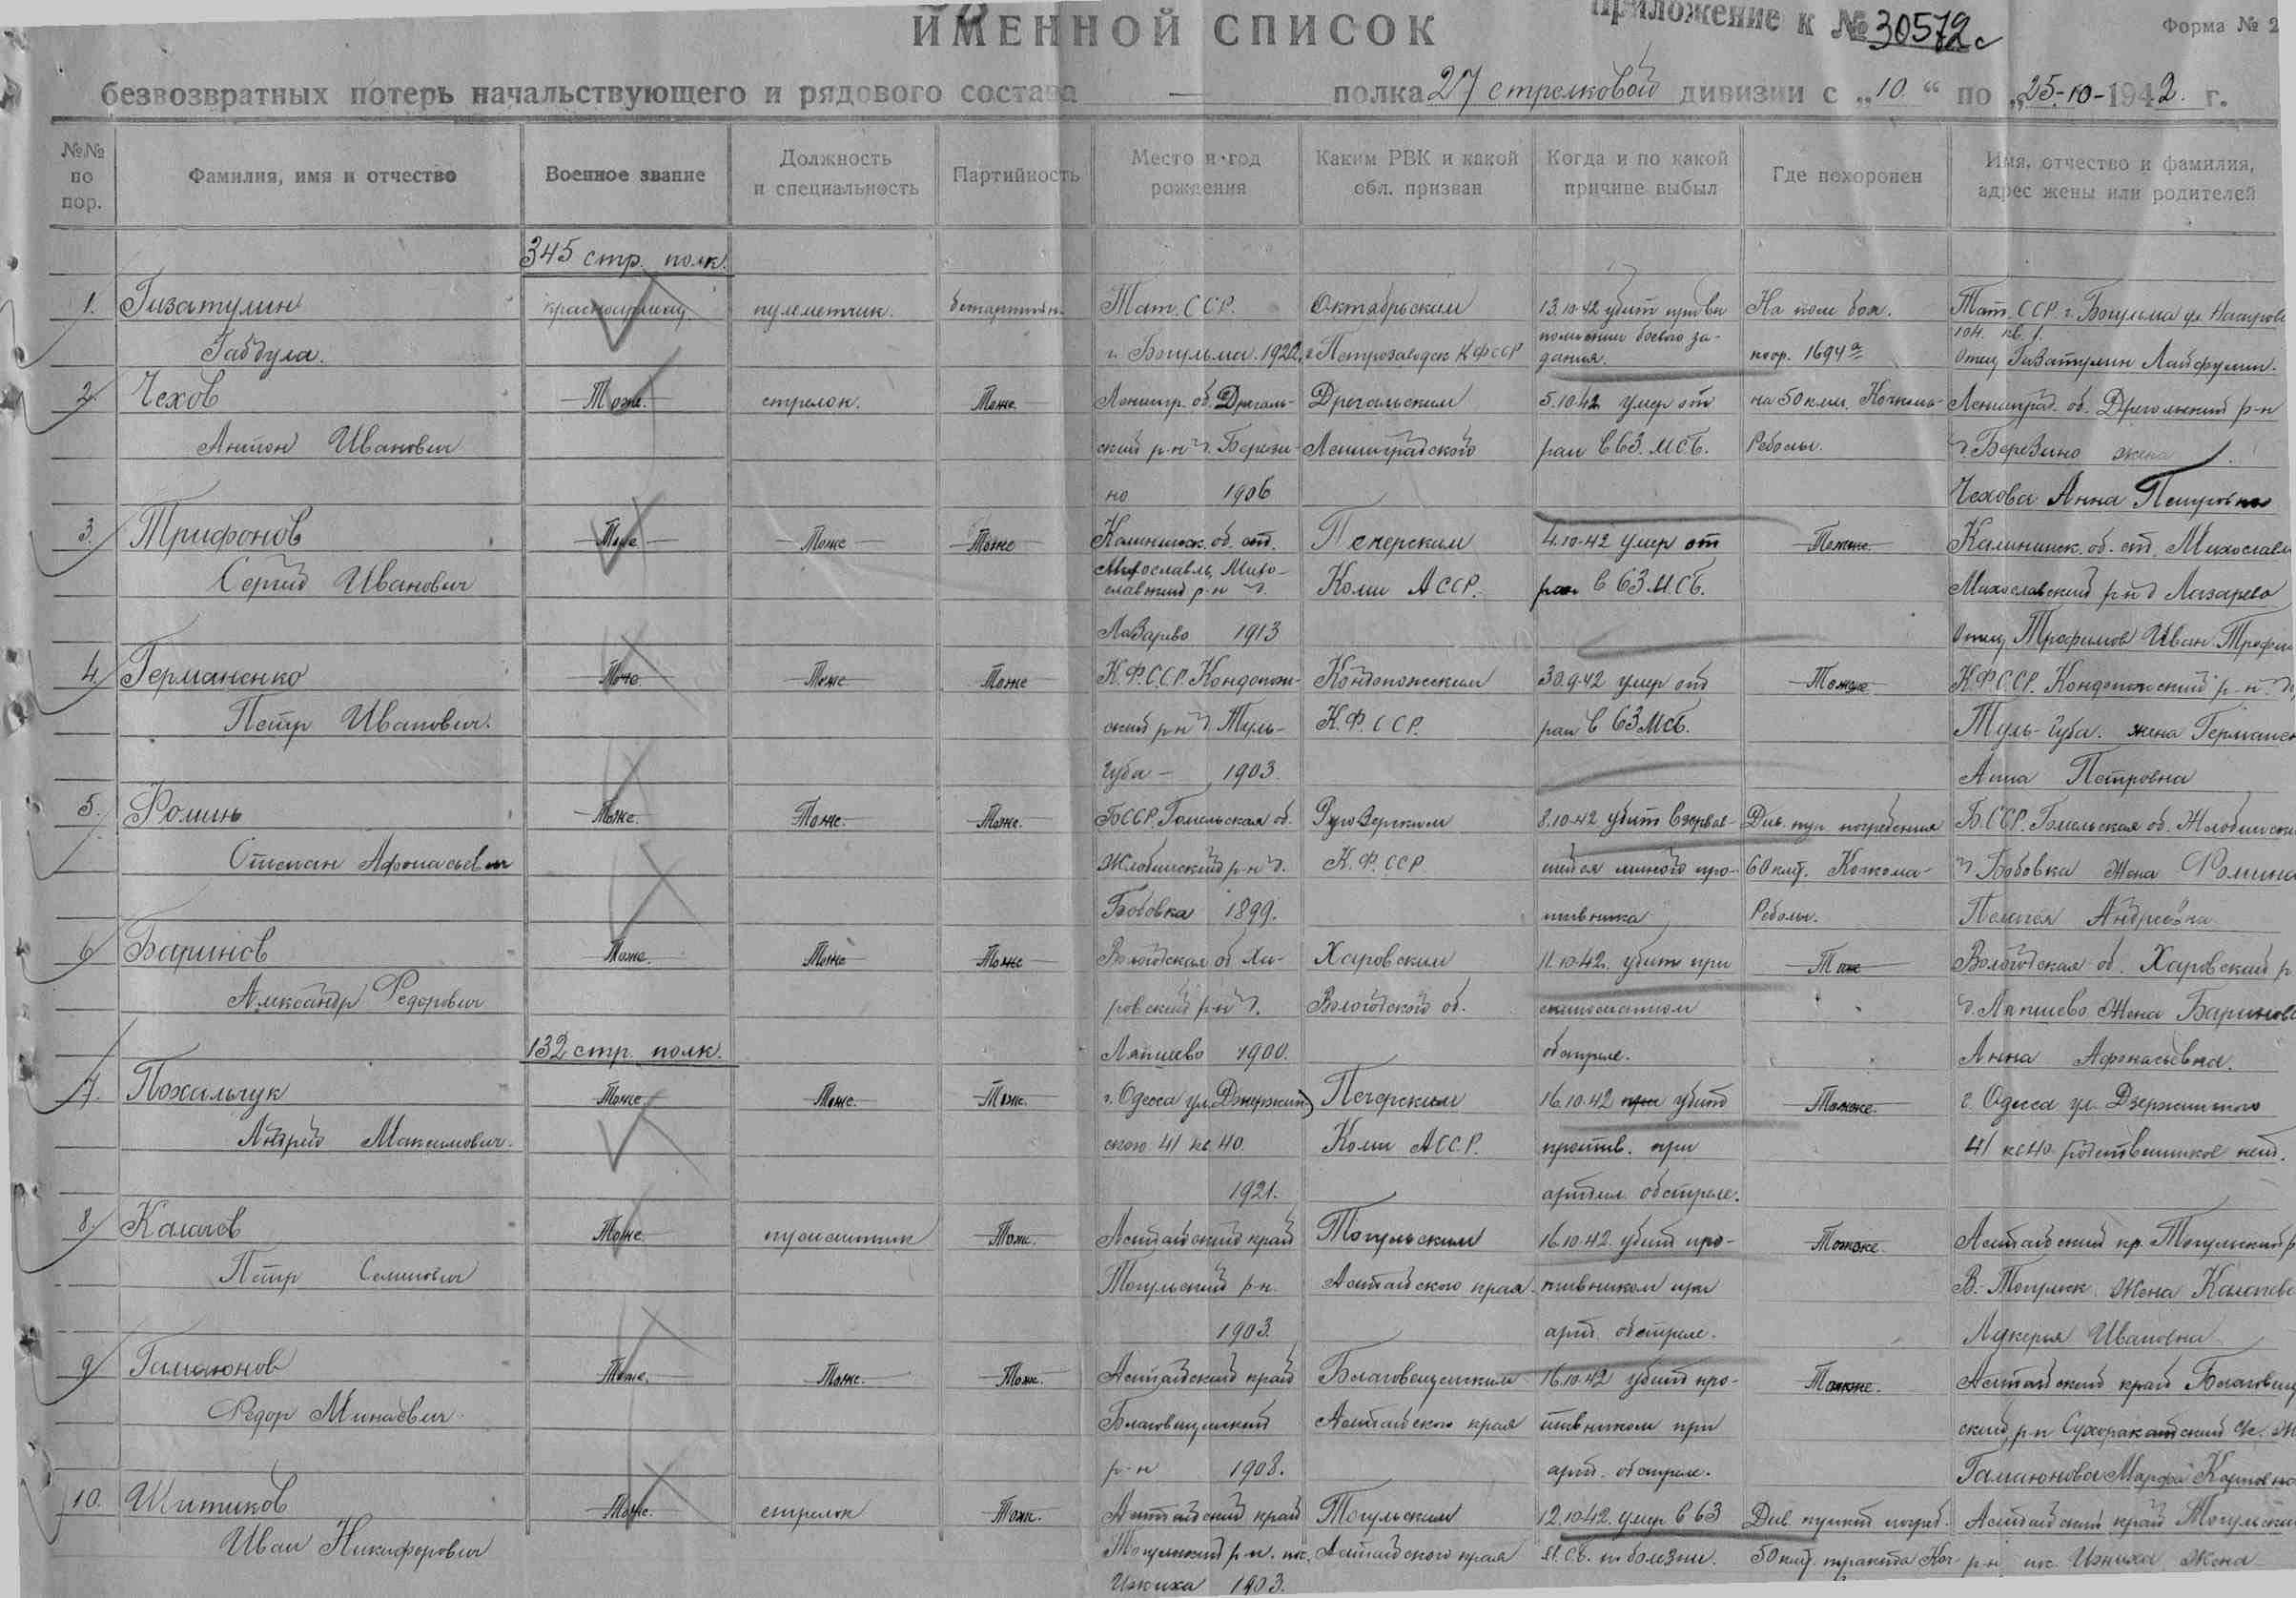 ИМЕННОЙ СПИСОК
Приложение к № 30572с
Форма № 2
безвозвратных потерь начальствующего и рядового состава — полка 27 стрелковой дивизии с „10“ по „25-10-1942. г.
№№ по пор.
Фамилия, имя и отчество
Военное звание
Должность и специальность
Партийность
Место и год рождения
Каким РВК и какой обл. призван
Когда и по какой причине выбыл
Где похоронен
Имя, отчество и фамилия, адрес жены или родителей
345 стр. полк.
1. Гизатулин красноармеец. пулеметчик. Тат. ССР. Октябрьским 13.10.42 убит при вы На поле боя. Тат. ССР. г. Бугульма ул.
104. кв. 1.
Габдула. г. Бугульма. 1922. г. Петрозаводск КФССР полнении боевого за-
дания. коор. 1694а Отец Гизатулин
2. Чехов Тоже. стрелок. Тоже Ленингр. об. Дрегель- Дрегельским 5.10.42 умер от на 50 клм. Кочкома- Ленинград. об. Дрегельский р-н
Антон Иванович ский р-н д. Берези- Ленинградского ран в 63. МСБ. Реболы. д. Березино жена
но 1906 Чехова Анна Петровна
3. Трифонов Тоже Тоже Тоже Калининск. об. ст. Печерским 4.10.42 умер от Тоже Калининск. об. ст.
Сергей Иванович славский р-н д. Коми АССР. ран в 63 МСБ. р-н д Лазарево
Лазарево 1913 Отец Трофимов Иван
4. Германенко Тоже. Тоже Тоже К.Ф.ССР. Кондопож- Кондопожским 30.9.42 умер от Тоже К.Ф.ССР. Кондопожский р-н д.
Петр Иванович. ский р-н д. Туль- К.Ф.ССР. ран в 63 МСБ. Туль-губа. жена
губа — 1903. Анна Петровна
5. Фоминь Тоже. Тоже. Тоже. БССР. Гомельская об. Ругозерским 8.10.42 убит взорвав- Див. пун. погребения БССР. Гомельская об.
Степан Афонасьевич Жлобинский р-н д. К.Ф.ССР шейся миной про- 60 клм. Кочкома- д. Бобовка жена Фомина
Бобовка 1899. тивника Реболы. Пелагея Андреевна
6 Баринов Тоже. Тоже Тоже Вологодская об Ха- Харовским 11.10.42. убит при Тоже Вологодская об. Харовский р
Александр Федорович ровский р-н д. Вологодской об. д. Лапшево жена Баринова
132 стр. полк.
Лапшево 1900. обстреле. Анна Афонасьевна.
7. Похальчук Тоже. Тоже. Тоже. г. Одесса ул. Дзержин- Печерским 16.10.42 убит Тоже. г. Одесса ул. Дзержинского
Андрей Максимович. ского 41 кв 40. Коми АССР. против. при 41 кв 40. родственников нет.
1921. артил. обстреле.
8. Калачев Тоже. Тоже. Алтайский край Тогульским 16.10.42. убит про- Тоже. Алтайский кр. Тогульский р
Петр Семенович Тогульский р-н. Алтайского края. тивником при В.-Тогульск. жена
1903. арт. обстреле. Лукерья Ивановна
9 Гамаюнов Тоже. Тоже. Тоже. Алтайский край Благовещенским 16.10.42 убит про- Тоже. Алтайский край
Федор Минаевич Благовещенский Алтайского края тивником при ский р-н
р-н 1908. арт. обстреле. Гамаюнова Марфа Карповна
10. Шитиков Тоже. стрелок Тоже. Алтайский край Тогульским 12.10.42. умер в 63 Див. пункт погреб. Алтайский край
Иван Никифорович Тогульский р-н. пос. Алтайского края М.С.Б. от болезни. 50 клм. тракта Коч- р-н пос. жена
1903.